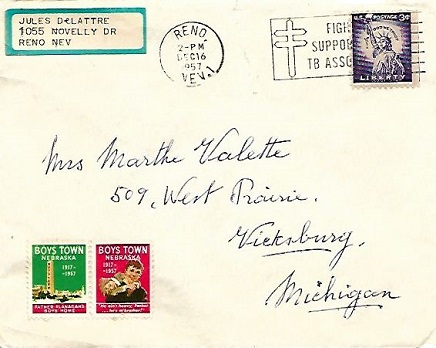 JULES DeLATTRE
1055 NOVELLY DR
RENO NEV
RENO,
2-PM
DEC 16
1957
NEV.
FIGH
SUPPOR
TB ASSO
U.S. POSTAGE 3¢
LIBERTY
Mrs Marthe Valette
509, West Prairie.
Vicksburg,
Michigan
BOYS TOWN
NEBRASKA
1917-
-1957
FATHER FLANAGAN'S
BOYS HOME
BOYS TOWN
NEBRASKA
1917-
-1957
"He ain't heavy, Father
...he's m'brother!"